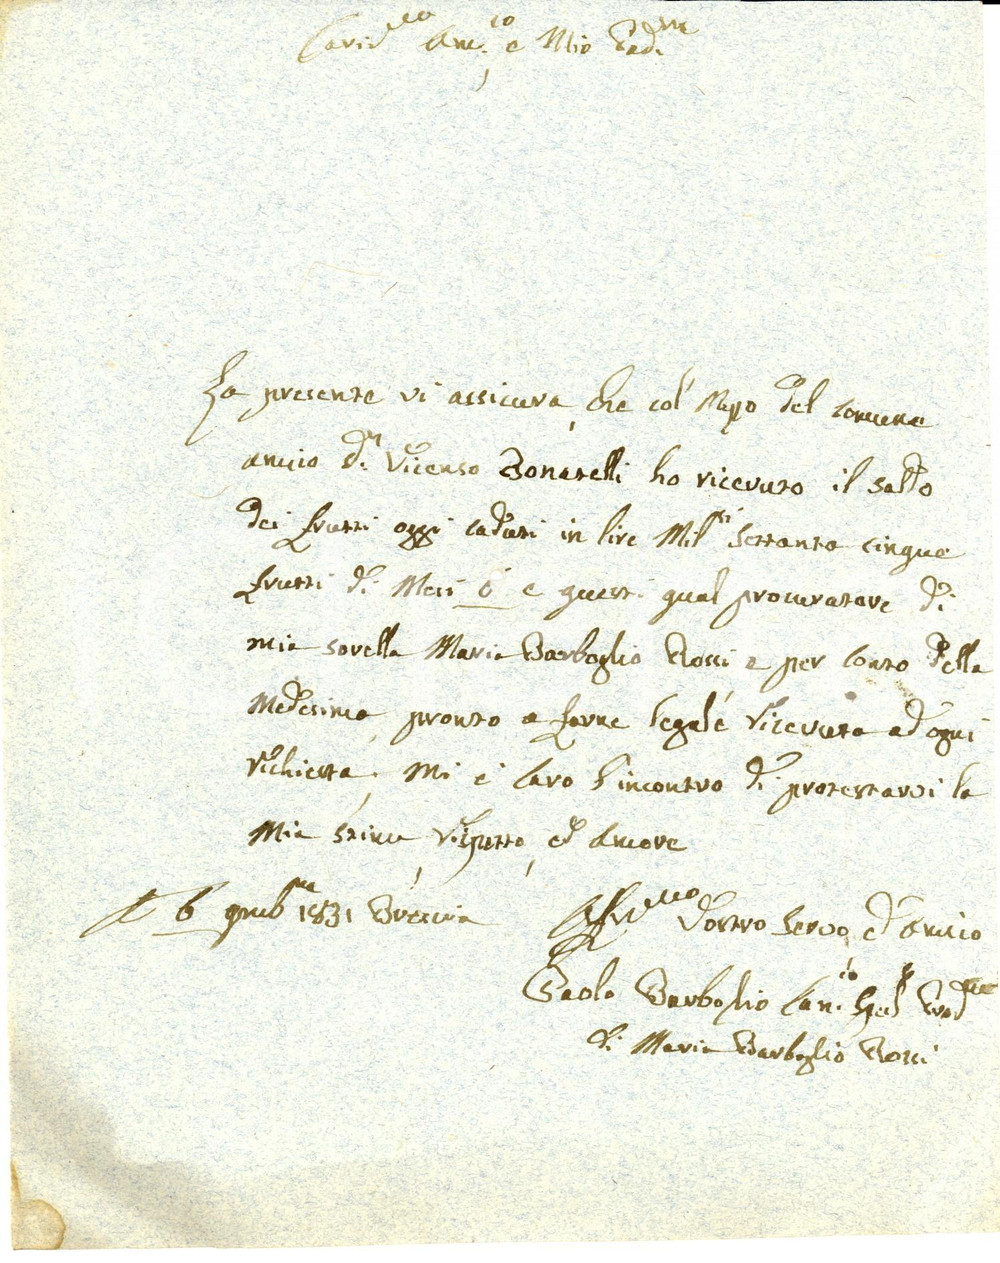 Carid.mo Am.co e Mio Pad.ne
La presente vi assicura, che col' Mezzo del comune
amico D.n Vicenso Bonatelli ho ricevuto il saldo
dei frutti oggi caduti in lire Mil.si Settanta cinque
frutti di Mesi 6 e questi qual procuratore di
mia sorella Maria Barboglio Rossi e per conto della
Medesima, pronto a farne legale ricevuta ad ogni
richiesta. Mi è caro l'incontro di protestarvi la
Mia Stima, rispetto, ed Amore
6 1831 Brescia
Aff.mo Vostro Servo ed Amico
Paolo Barboglio Can.co
di Maria Barboglio Rossi